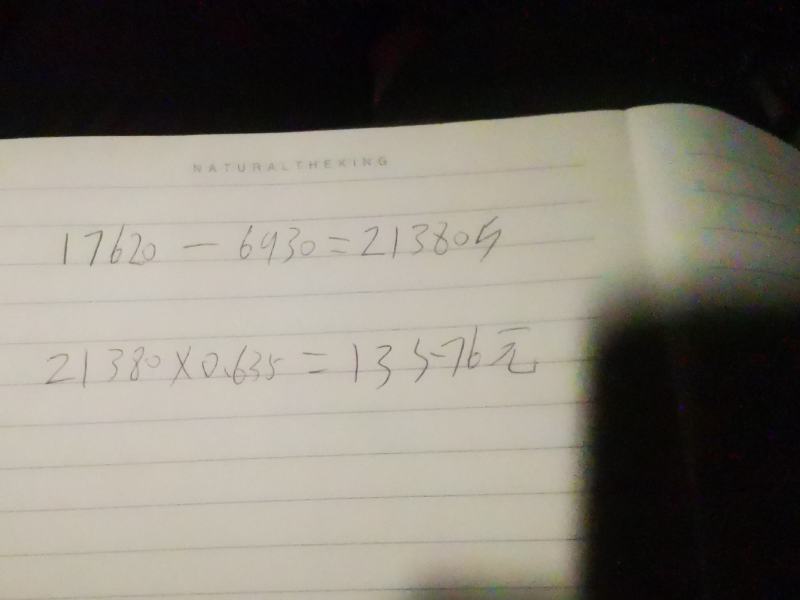 NATURALTHEKING
17620 - 6930 = 21380斤
21380 × 0.635 = 13576元